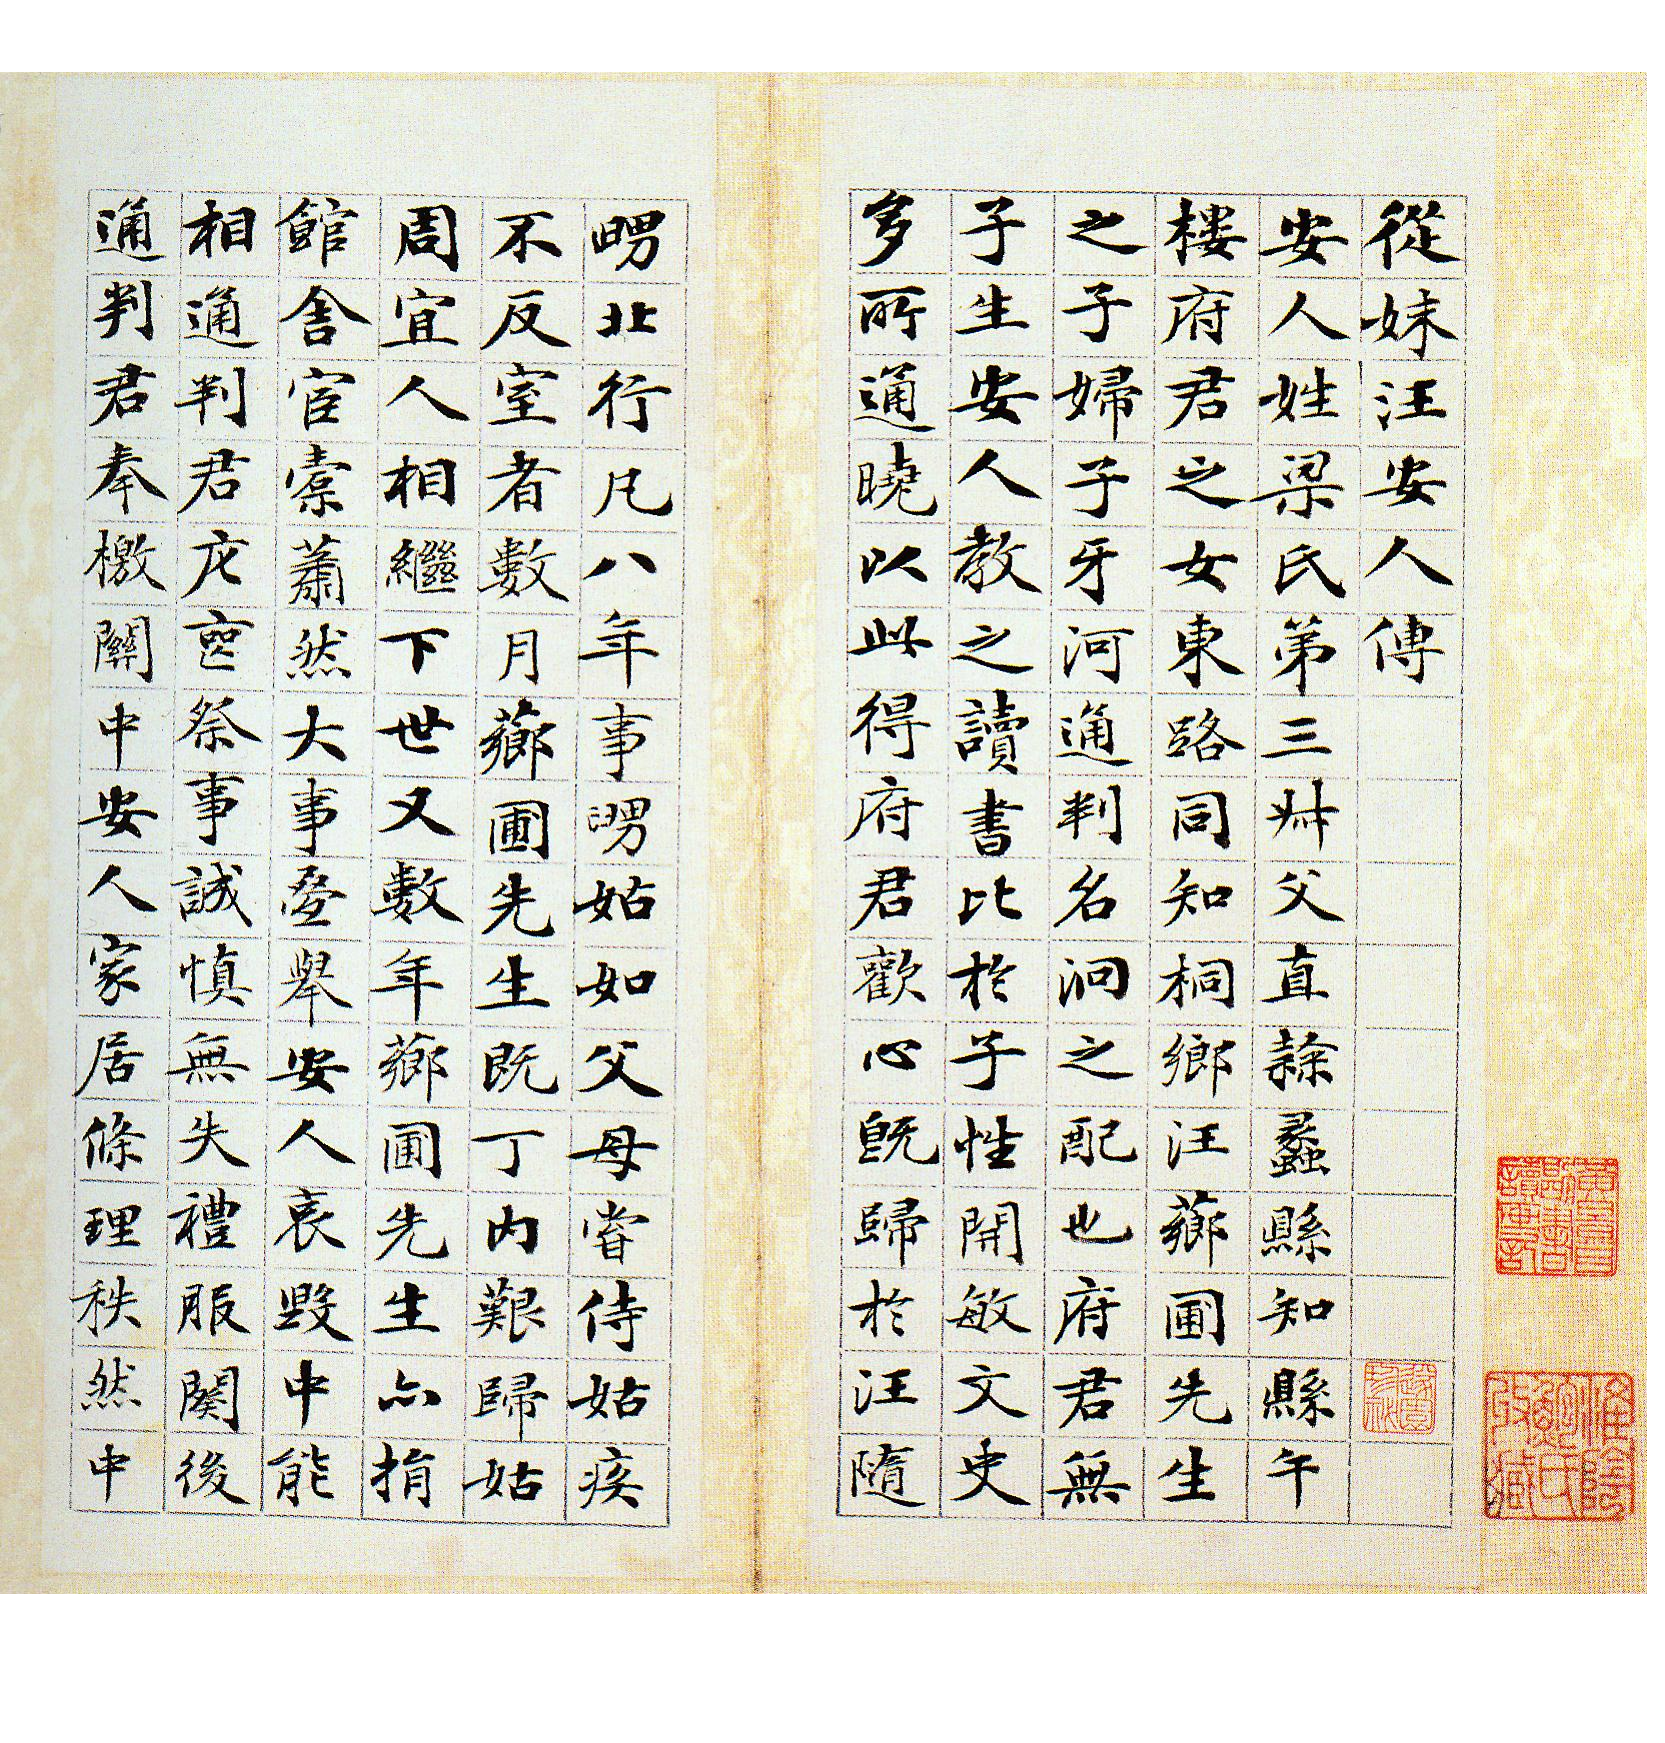 從妹汪安人傳
安人姓梁氏第三妹父直隸蠡縣知縣午
樓府君之女東路同知桐鄉汪薌圃先生
之子婦子牙河通判名泂之配也府君無
子生安人教之讀書比於子性開敏文史
多所通曉以此得府君歡心既歸於汪隨
甥北行凡八年事甥姑如父母嘗侍姑疾
不反室者數月薌圃先生既丁內艱歸姑
周宜人相繼下世又數年薌圃先生亦捐
館舍宦橐蕭然大事疊舉安人哀毀中能
相通判君庀喪祭事誠慎無失禮服闋後
通判君奉檄關中安人家居條理秩然中